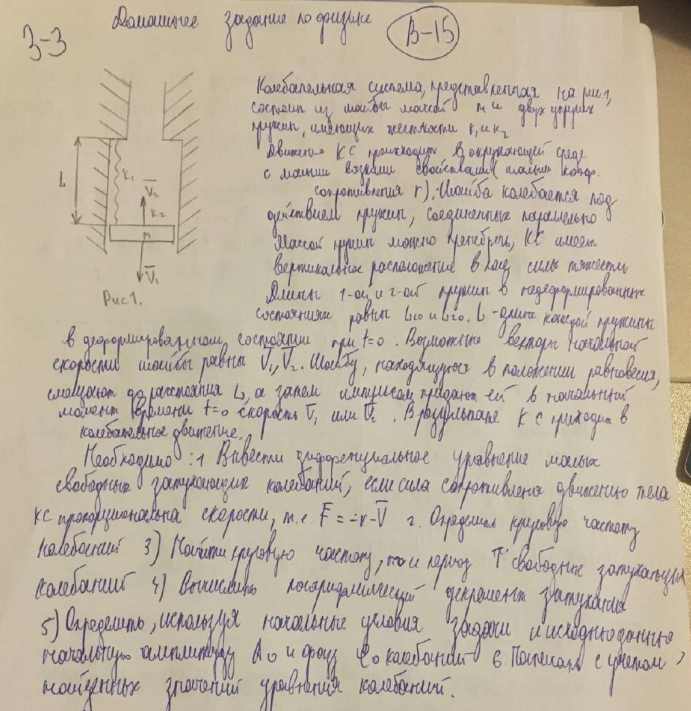 Домашнее задание по физике
В-15
3-3
L
k₁
V̅₂
k₂
m
V̅₁
Рис 1.
Колебательная система, представленная на рис 1,
состоит из шайбы массой m и двух упругих
пружин, имеющих жесткости k₁ и k₂
Движение КС происходит в окружающей среде
с малыми вязкими свойствами (малым коэф.
сопротивления r). Шайба колеблется под
действием пружин, соединенных параллельно
Массой пружин можно пренебречь, КС имеет
вертикальное расположение в поле силы тяжести
Длины 1-ой и 2-ой пружин в недеформированных
состояниях равны L₁₀ и L₂₀. L - длина каждой пружины
в деформированном состоянии при t=0. Возможные векторы начальной
скорости шайбы равны V̅₁, V̅₂. Шайбу, находящуюся в положении равновесия,
смещают до расстояния L, а затем импульсом придают ей в начальный
момент времени t=0 скорость V̅₁ или V̅₂. В результате КС приходит в
колебательное движение.
Необходимо: 1 Вывести дифференциальное уравнение малых
свободных затухающих колебаний, если сила сопротивления движению тела
КС пропорциональна скорости, т.е. F̅ = -r-V̅ 2. Определить круговую частоту
колебаний 3) Найти круговую частоту, и период T свободных затухающих
колебаний 4) Вычислить логарифмический декремент затухания
5) Определить, используя начальные условия задачи и исходные данные
начальную амплитуду A₀ и фазу φ₀ колебаний 6. Написать с учетом
найденных значений уравнения колебаний.